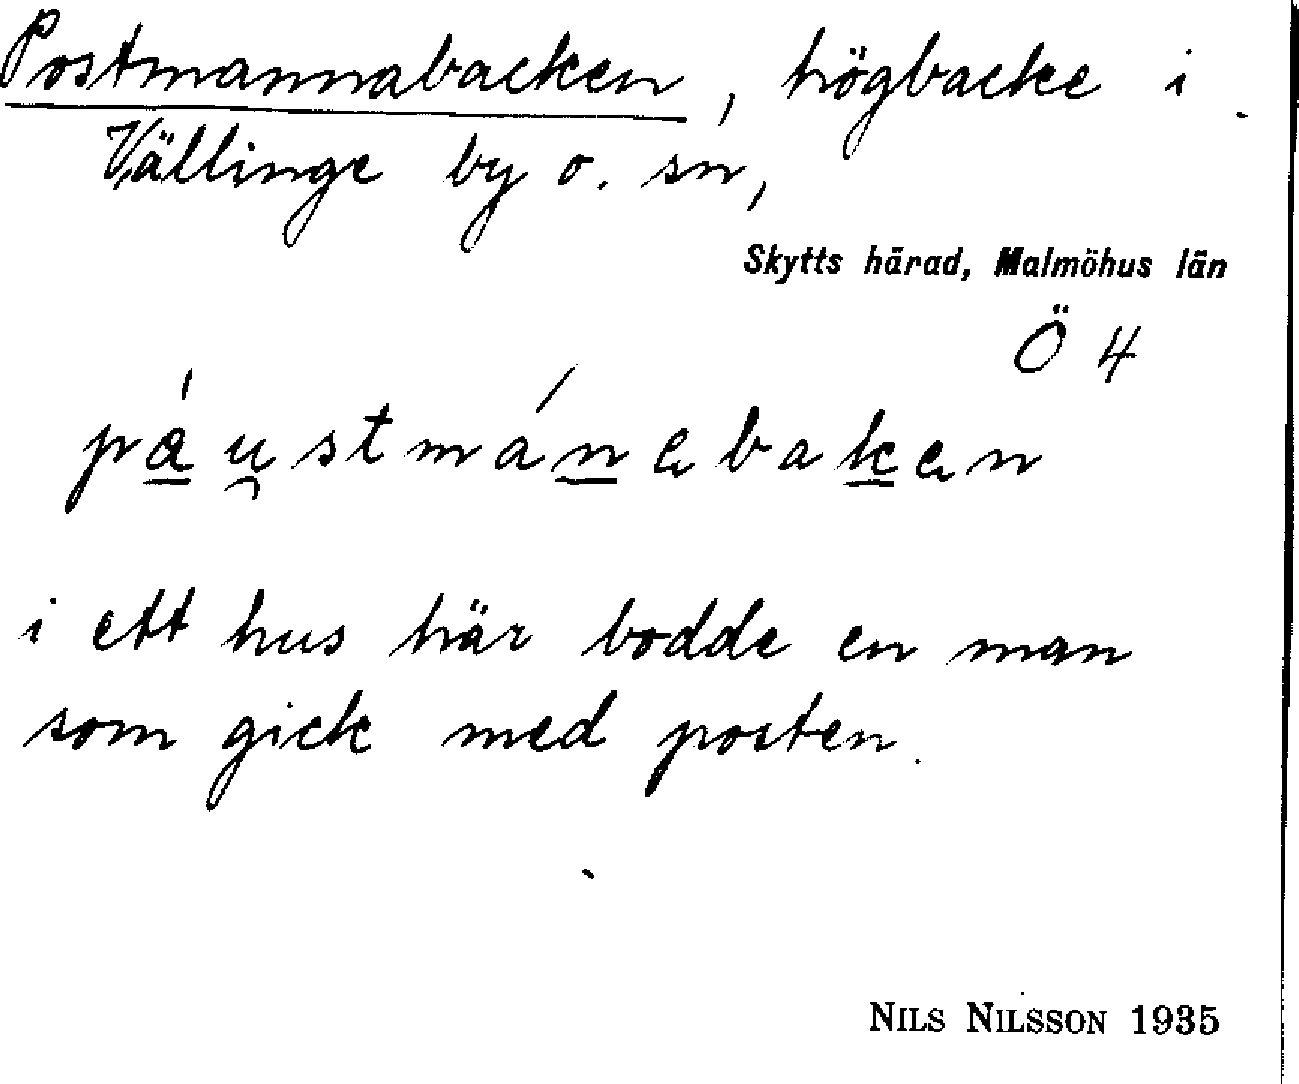 Postmannabacken, högbacke i
Vällinge by o. sn,
Skytts härad, Malmöhus län
Ö 4
páu̯stmánabakan
i ett hus här bodde en man
som gick med posten.
NILS NILSSON 1935